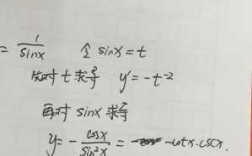 = 1/sinx 令 sinx = t
先对 t 求导 y' = -t⁻²
再对 sinx 求导
y = - cosx/sin²x = -cotx·cscx.